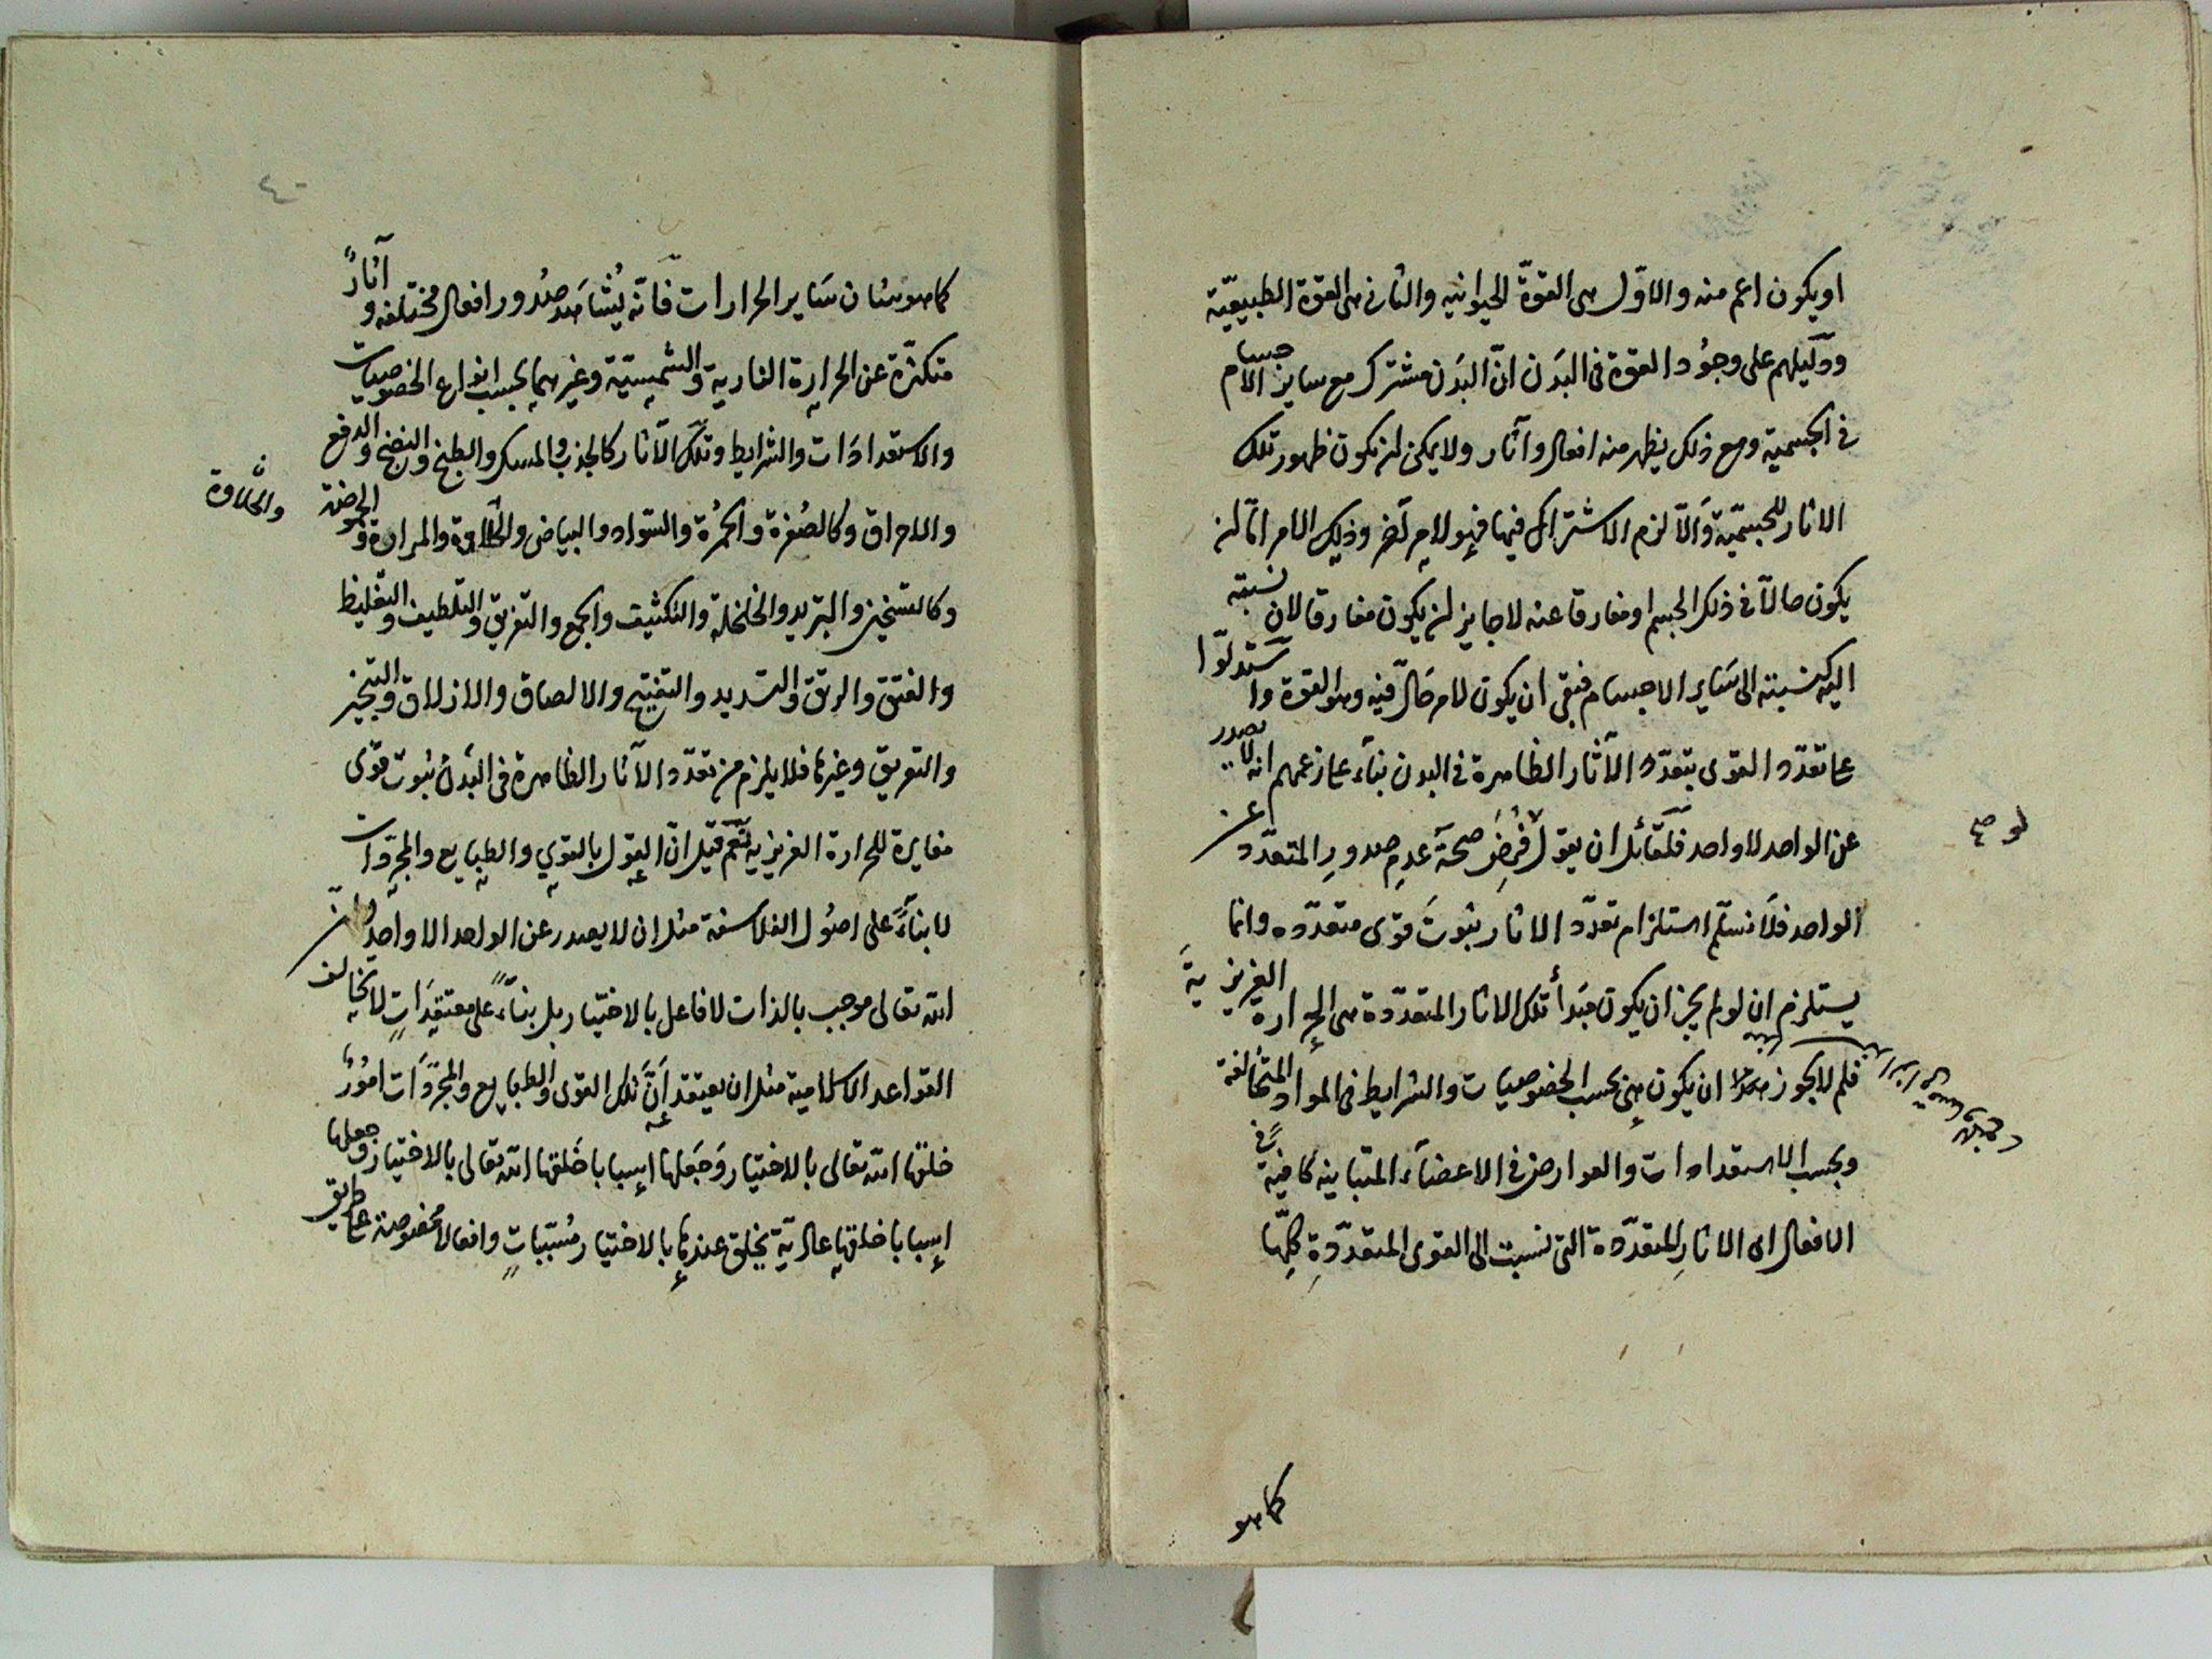 او يكون اعم منه والاوّل هى القوّة الحيوانيه والثانى هى القوة الطبيعيّة
ودليلهم على وجُود القوة فى البَدَن انّ البَدَن مشترك مع ساير الاجسام
فى الجسمية ومع ذلك يظهر منه افعال وآثار ولا يمكن ان يكون ظهور تلك
الاثار للجسميّة وَالّا لزم الاشتراك فيها فهو لامر آخر وذلك الامر امّا ان
يكون حالّا فى ذلك الجسم او مفارقا عنه لا جايز ان يكون مفارقا لان نسبته
اليه كنسبته الى سَاير الاجسام فبقى ان يكون لامر حَالّ فيه وهو القوة واستدلّوا
على تعدّد القوى بتعدّد الآثار الظاهرة فى البدن بناء على زعمهم انه لا يصدر
عن الواحد الا واحد فلقائل ان يقول لو فُرِضَ صحّة عدمِ صدورِ المتعدّد عن
لو صح
الواحد فلَا نسلّم استلزام تعدّد الاثار ثبوتَ قوى متعدّده وانما
يستلزم ان لو لم يجز ان يكون مَبدأ تلك الاثار المتعدّدة هى الحرارة الغريزيةَ
فلم لا يجوز ان يكون هى بحسب الخصوصيات والشرايط فى المواد المتخالفة
وبحسب الاستعدادات والعوارض فى الاعضاء المتباينه كافيةً فى
الافعال اى الاثارِ المتعدّدة التى نسبت الى القوى المتعدّدةِ كلِّها
كما هو
٤٠
كما هو شان سَاير الحرارات فانّه يُشاهَد صدُور افعال مختلفه وآثارً
متكثّرة عن الحرارة النارية والشمسيّة وغيرهما بحسب انواع الخصوصيات
والاستعدادَات والشرايط وتلك الآثار كالجذب والمسك والطبخ والنضج والدفع
والاحراق وكالصُفرة والحمُرة والسّواد والبياض والحلاوة والمرارة والحموضة
والحلاوة
وكالتسخين والتبريد والخلخلة والتكثيف والجمع والتفريق والتلطيف والتغليظ
والفتق والرتق والتسديد والتفتيح والالصاق والازلاق والتبخير
والتعريق وغيرها فلا يلزم من تعدّد الآثار الظاهرة فى البَدن ثبوت قوى
مغايرة للحرارة الغريزيه نَعَم قيل انّ القول بالقوى والطبايع والمجرّدات
لا بناءً على اصُول الفلاسفة مثل ان لا يصدر عن الواحد الا واحد وانّ
الله تعالى موجب بالذات لا فاعل بالاختيار بل بناءً على معتقدَاتٍ لا يخالف
القواعد الاسلامية مثل ان يعتقد أنَّ تلك القوى والطبايع والمجرّدَات امُورٌ
خلقها الله تعالى بالاختيار وَجَعَلها اسبابا خَلقها الله تعالى بالاختيار وجعلها
اسبابا خلقها عاديّة يخلق عندها بالاختيار مُسَبّباتٍ وافعالًا مخصوصة على طريق